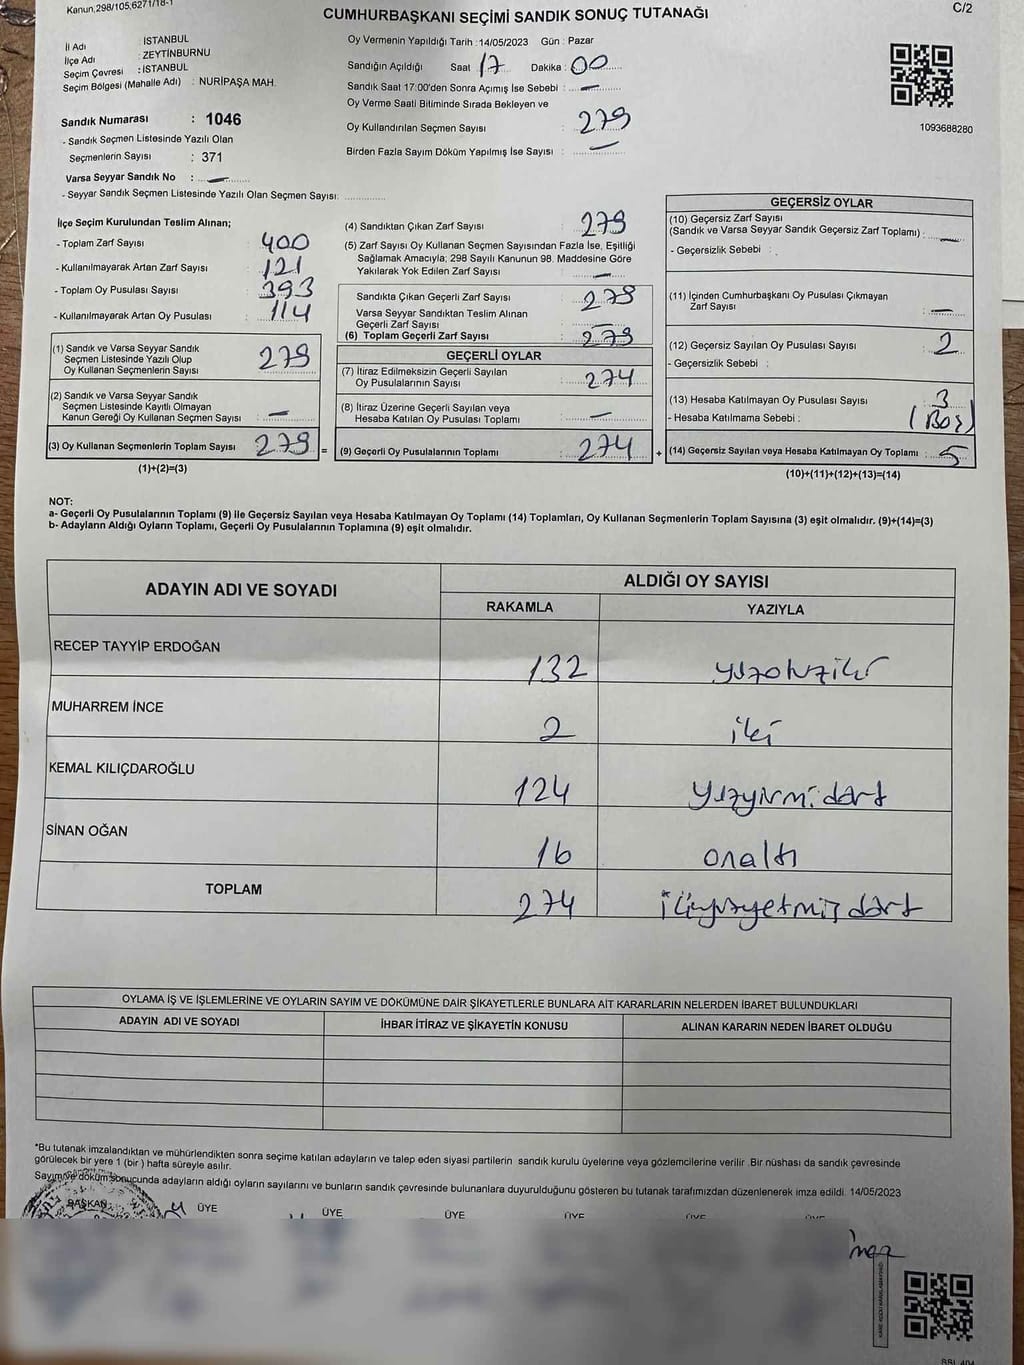 Kanun,298/105,6271/18-1
C/2
CUMHURBAŞKANI SEÇİMİ SANDIK SONUÇ TUTANAĞI
İl Adı : İSTANBUL
İlçe Adı : ZEYTİNBURNU
Seçim Çevresi : İSTANBUL
Seçim Bölgesi (Mahalle Adı) : NURİPAŞA MAH.
Sandık Numarası : 1046
- Sandık Seçmen Listesinde Yazılı Olan
Seçmenlerin Sayısı : 371
Varsa Seyyar Sandık No : —
- Seyyar Sandık Seçmen Listesinde Yazılı Olan Seçmen Sayısı:
Oy Vermenin Yapıldığı Tarih : 14/05/2023 Gün : Pazar
Sandığın Açıldığı Saat 17 Dakika : 00
Sandık Saat 17:00'den Sonra Açımış İse Sebebi : —
Oy Verme Saati Bitiminde Sırada Bekleyen ve
Oy Kullandırılan Seçmen Sayısı : 279
Birden Fazla Sayım Döküm Yapılmış İse Sayısı : —
1093688280
İlçe Seçim Kurulundan Teslim Alınan;
- Toplam Zarf Sayısı : 400
- Kullanılmayarak Artan Zarf Sayısı : 121
- Toplam Oy Pusulası Sayısı : 393
- Kullanılmayarak Artan Oy Pusulası : 114
(1) Sandık ve Varsa Seyyar Sandık
Seçmen Listesinde Yazılı Olup
Oy Kullanan Seçmenlerin Sayısı : 279
(2) Sandık ve Varsa Seyyar Sandık
Seçmen Listesinde Kayıtlı Olmayan
Kanun Gereği Oy Kullanan Seçmen Sayısı : —
(3) Oy Kullanan Seçmenlerin Toplam Sayısı : 279
(1)+(2)=(3)
(4) Sandıktan Çıkan Zarf Sayısı : 279
(5) Zarf Sayısı Oy Kullanan Seçmen Sayısından Fazla İse, Eşitliği
Sağlamak Amacıyla; 298 Sayılı Kanunun 98. Maddesine Göre
Yakılarak Yok Edilen Zarf Sayısı : —
Sandıkta Çıkan Geçerli Zarf Sayısı : 279
Varsa Seyyar Sandıktan Teslim Alınan
Geçerli Zarf Sayısı : —
(6) Toplam Geçerli Zarf Sayısı : 279
GEÇERLİ OYLAR
(7) İtiraz Edilmeksizin Geçerli Sayılan
Oy Pusulalarının Sayısı : 274
(8) İtiraz Üzerine Geçerli Sayılan veya
Hesaba Katılan Oy Pusulası Toplamı : —
= (9) Geçerli Oy Pusulalarının Toplamı : 274
GEÇERSİZ OYLAR
(10) Geçersiz Zarf Sayısı
(Sandık ve Varsa Seyyar Sandık Geçersiz Zarf Toplamı) : —
- Geçersizlik Sebebi :
(11) İçinden Cumhurbaşkanı Oy Pusulası Çıkmayan
Zarf Sayısı : —
(12) Geçersiz Sayılan Oy Pusulası Sayısı : 2
- Geçersizlik Sebebi :
(13) Hesaba Katılmayan Oy Pusulası Sayısı : 3
- Hesaba Katılmama Sebebi : (Boş)
+ (14) Geçersiz Sayılan veya Hesaba Katılmayan Oy Toplamı : 5
(10)+(11)+(12)+(13)=(14)
NOT:
a- Geçerli Oy Pusulalarının Toplamı (9) ile Geçersiz Sayılan veya Hesaba Katılmayan Oy Toplamı (14) Toplamları, Oy Kullanan Seçmenlerin Toplam Sayısına (3) eşit olmalıdır. (9)+(14)=(3)
b- Adayların Aldığı Oyların Toplamı, Geçerli Oy Pusulalarının Toplamına (9) eşit olmalıdır.
ADAYIN ADI VE SOYADI ALDIĞI OY SAYISI
RAKAMLA YAZIYLA
RECEP TAYYİP ERDOĞAN 132 yüzotuziki
MUHARREM İNCE 2 iki
KEMAL KILIÇDAROĞLU 124 yüzyirmidört
SİNAN OĞAN 16 onaltı
TOPLAM 274 ikiyüzyetmişdört
OYLAMA İŞ VE İŞLEMLERİNE VE OYLARIN SAYIM VE DÖKÜMÜNE DAİR ŞİKAYETLERLE BUNLARA AİT KARARLARIN NELERDEN İBARET BULUNDUKLARI
ADAYIN ADI VE SOYADI İHBAR İTİRAZ VE ŞİKAYETİN KONUSU ALINAN KARARIN NEDEN İBARET OLDUĞU
*Bu tutanak imzalandıktan ve mühürlendikten sonra seçime katılan adayların ve talep eden siyasi partilerin sandık kurulu üyelerine veya gözlemcilerine verilir .Bir nüshası da sandık çevresinde
görülecek bir yere 1 (bir ) hafta süreyle asılır.
Sayım ve döküm sonucunda adayların aldığı oyların sayılarını ve bunların sandık çevresinde bulunanlara duyurulduğunu gösteren bu tutanak tarafımızdan düzenlenerek imza edildi. 14/05/2023
BAŞKAN ÜYE ÜYE ÜYE ÜYE ÜYE ÜYE